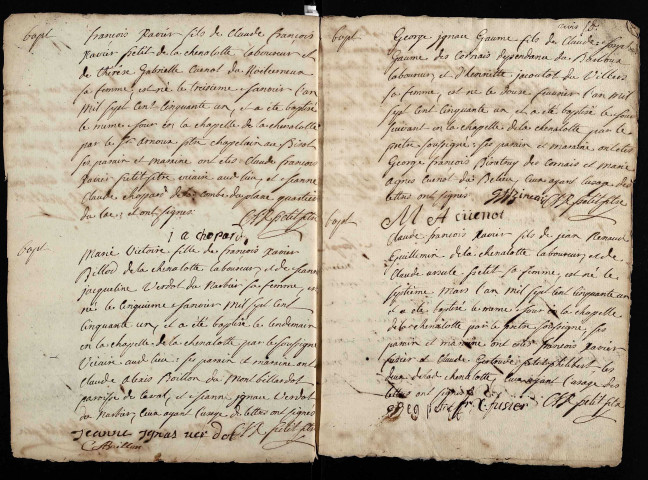 bapt
françois Xavier fils de Claude françois
Xavier petit de la chenalotte laboureur et
de Thérèse Gabrielle Cuenot du
sa femme, est né le troisième Janvier l'an
Mil sept cent cinquante un, et a été baptisé
le même jour en la chapelle de la chenalotte
par le Sr Arnoux ptre chapelain au
ses parain et maraine ont étés Claude françois
Xavier petit ptre vicaire aud lieu, et Jeanne
Claude chopard de la combe du quartier
du lac; et ont signés
CFX petit ptre
I a chopard
bapt
Marie Victoire fille de françois Xavier
Billod de la chenalotte laboureur, et de Jeanne
jacqueline Verdot du Narbier sa femme, est
née le Cinquième Janvier Mil sept cent
cinquante un, et a été baptisée le lendemain
en la chapelle de la chenalotte par le soussigné
Vicaire aud lieu: ses parain et maraine ont étés
Claude Alexis Boillon du Montbéliardot
paroisse de , et Jeanne ignace Verdot
du Narbier, eux ayant l'usage de lettres ont signés
jeanne Ignas ver dot CFX petit ptre
C Boillon
bapt
George ignace Gaume fils de Claude joseph
Gaume des Cornais dependance du
laboureur, et d'henriette jacoulot du Villers
sa femme, est né le douze fevrier l'an Mil
sept cent cinquante un et a été baptisé le jour
suivant en la chapelle de la chenalotte par le
prêtre soussigné: ses parain et maraine ont étés
George françois des Cornais et marie
agnes Cuenot du Belieu, eux ayant l'usage des
lettres ont signés CFX petit ptre
M A cuenot
bapt
Claude françois Xavier fils de jean Renaud
Guillemin de la chenalotte laboureur, et de
Claude ursule petit sa femme, est né le
septième Mars l'an Mil sept cent cinquante un
et a été baptisé le même jour en la chapelle
de la chenalotte par le prêtre soussigné, ses
parain et maraine ont étés françois Xavier
fusier et Claude Gertrude petit philibert, les
deux de lad. chenalotte, eux ayant l'usage des
lettres ont signés
fr X fusier CFX petit ptre